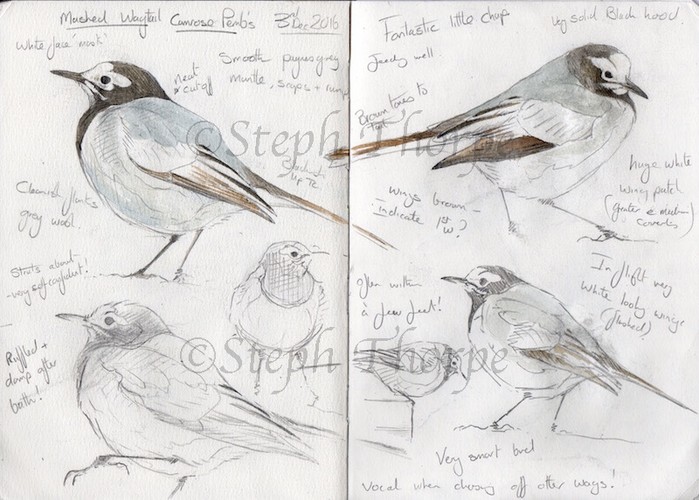 Masked Wagtail Camrose Pembs 3rd Dec 2016
White face 'mask'
neat
cutoff
Smooth grey
mantle, scaps + rump
Clean ish flanks
grey wash.
Struts about -
- very self confident!
Ruffled +
damp after
bath!
Fantastic little chap
Very solid Black hood.
Feeding well.
Brown tones to
wings brown -
- indicate 1st
W?
huge white
wing patch
(greater & median)
coverts)
often within
a few feet!
In flight very
white looky wings
(flashed)
Very smart bird
Vocal when chasing off other wags!
©Steph Thorpe
©Steph Thorpe